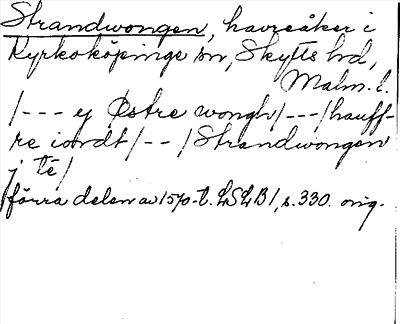 Strandwongen, havreåker i
Kyrkoköpinge sn, Skytts hd,
Malm. l.
/--- ej Østre wongh/---/hauff-
re iordt/--/Strandwongen
j té/
förra delen av 1570-t. LSLB 1, s. 330. orig.